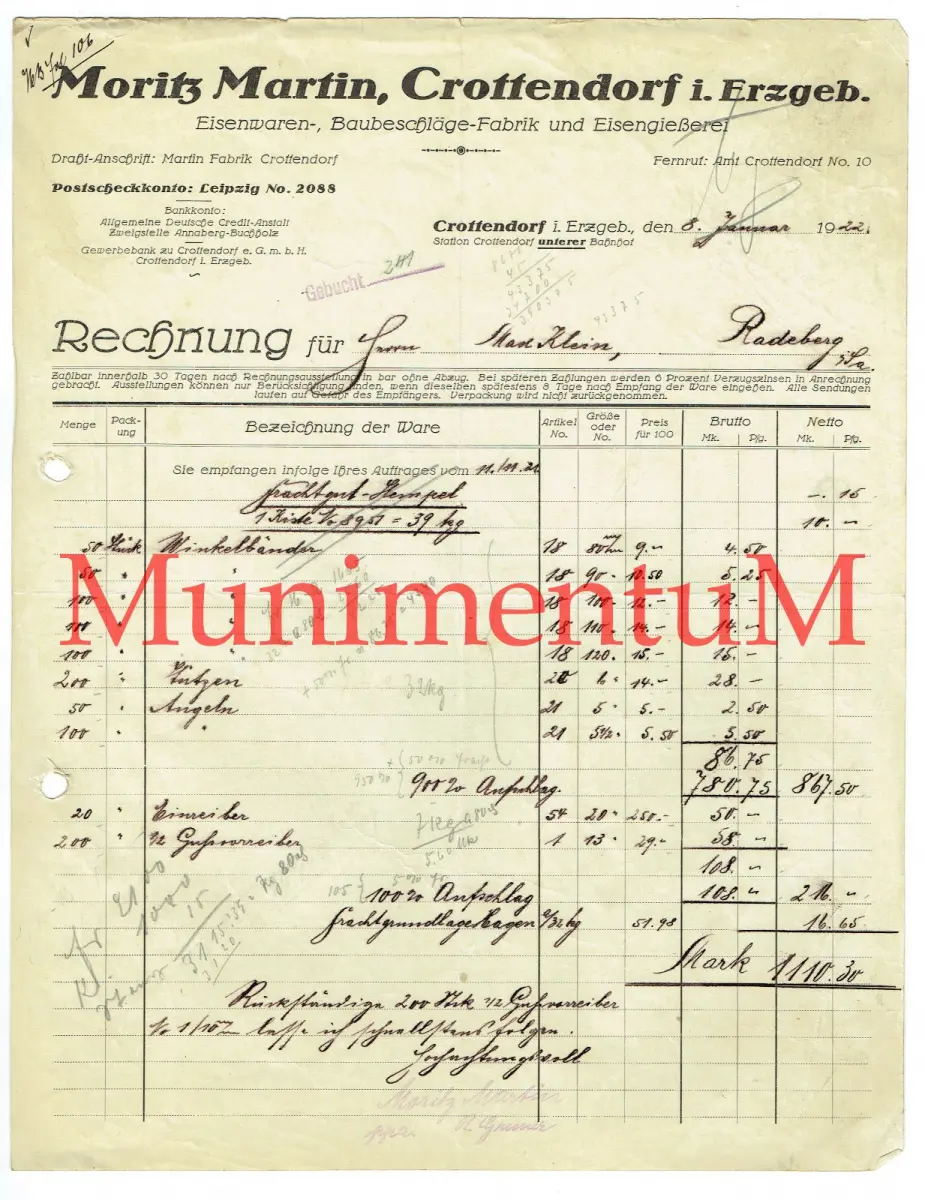 106
Moritz Martin, Crottendorf i. Erzgeb.
Eisenwaren-, Baubeschläge-Fabrik und Eisengießerei
Draht-Anschrift: Martin Fabrik Crottendorf
Fernruf: Amt Crottendorf No. 10
Postscheckkonto: Leipzig No. 2088
Bankkonto:
Allgemeine Deutsche Credit-Anstalt
Zweigstelle Annaberg-Buchholz
Gewerbebank zu Crottendorf e. G. m. b. H.
Crottendorf i. Erzgeb.
Crottendorf i. Erzgeb., den 8. Januar 1922.
Station Crottendorf unterer Bahnhof
Gebucht 241
Rechnung für Herrn Max Klein, Radeberg i/Sa.
Zahlbar innerhalb 30 Tagen nach Rechnungsausstellung in bar ohne Abzug. Bei späteren Zahlungen werden 6 Prozent Verzugszinsen in Anrechnung
gebracht. Ausstellungen können nur Berücksichtigung finden, wenn dieselben spätestens 8 Tage nach Empfang der Ware eingehen. Alle Sendungen
laufen auf Gefahr des Empfängers. Verpackung wird nicht zurückgenommen.
Menge Pack-ung Bezeichnung der Ware Artikel No. Größe oder No. Preis für 100 Brutto Mk. Pfg. Netto Mk. Pfg.
Sie empfangen infolge Ihres Auftrages vom 11./11. 21
Frachtgut-Stempel -. 15
1 Kiste No 8951 = 39 kg 10. -
50 Stück Winkelbänder 18 80 mm 9.- 4.50
50 " " 18 90 " 10.50 5.25
100 " " 18 100 " 12.- 12.-
100 " " 18 110 " 14.- 14.-
100 " " 18 120 " 15.- 15.-
200 " Stützen 20 6 " 14.- 28.-
50 " Angeln 21 5 " 5.- 2.50
100 " " 21 5½ " 5.50 5.50
86.75
900% Aufschlag. 780.75 867.50
20 " Einreiber 54 20 " 250.- 50.-
200 " ½ Gußvorreiber 1 13 " 29.- 58.-
108.-
100% Aufschlag 108.- 216.-
Frachtgrundlage Hagen 32 kg 51.98 16.65
Mark 1110.30
32 kg
Rückständige 200 Stck ½ Gußvorreiber
No 1/13 lasse ich schnellstens folgen.
Hochachtungsvoll
Moritz Martin
ppa.
MunimentuM